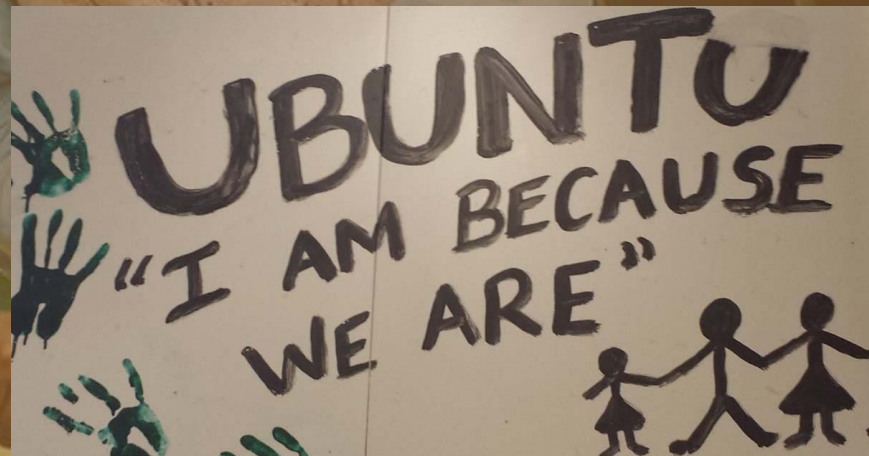 UBUNTU
“I AM BECAUSE
WE ARE”